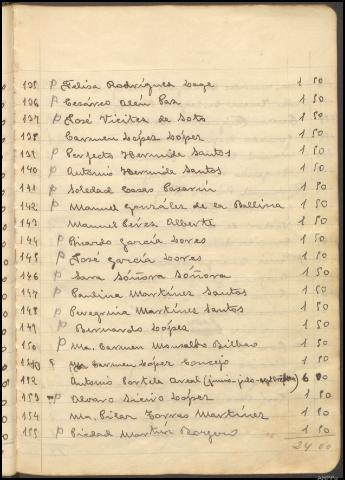 135 P Felisa Rodríguez Lage 1 50
136 P Cesáreo Alén Paz 1 50
137 P José Vicites de Soto 1 50
138 Carmen López López 1 50
139 P Perfecto Hermida Santos 1 50
140 P Antonio Hermida Santos 1 50
141 P Soledad Casas 1 50
142 P Manuel González de la Ballina 1 50
143 Manuel Pérez Alberti 1 50
144 P Ricardo García Loras 1 50
145 P José García Loras 1 50
146 P Sara Sóñora Sóñora 1 50
147 P Paulina Martínez Santos 1 50
148 P Peregrina Martínez Santos 1 50
149 P Bernardo López 1 50
150 P Ma. Carmen Bilbao 1 50
Ma Carmen López Concejo 1 50
152 Antonio Portela Areal (junio-julio-) 6 00
153 P Alvaro Sieiro López 1 50
154 Ma. Pilar Torras Martínez 1 50
155 P Piedad Martín 1 50